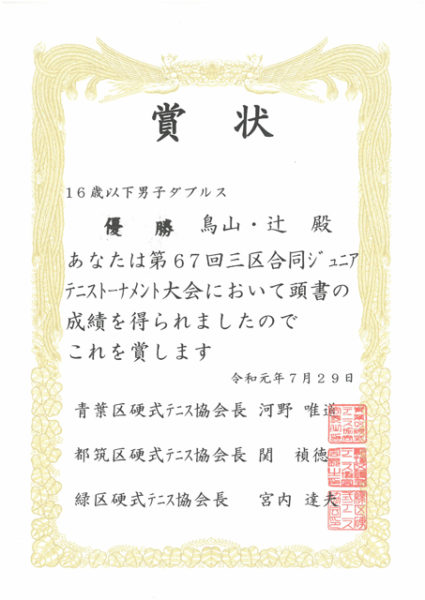 賞状
16歳以下男子ダブルス
優勝 鳥山・辻 殿
あなたは第67回三区合同ジュニア
テニストーナメント大会において頭書の
成績を得られましたので
これを賞します
令和元年7月29日
青葉区硬式テニス協会長 河野 唯道
都筑区硬式テニス協会長 関 禎徳
緑区硬式テニス協会長 宮内 達夫